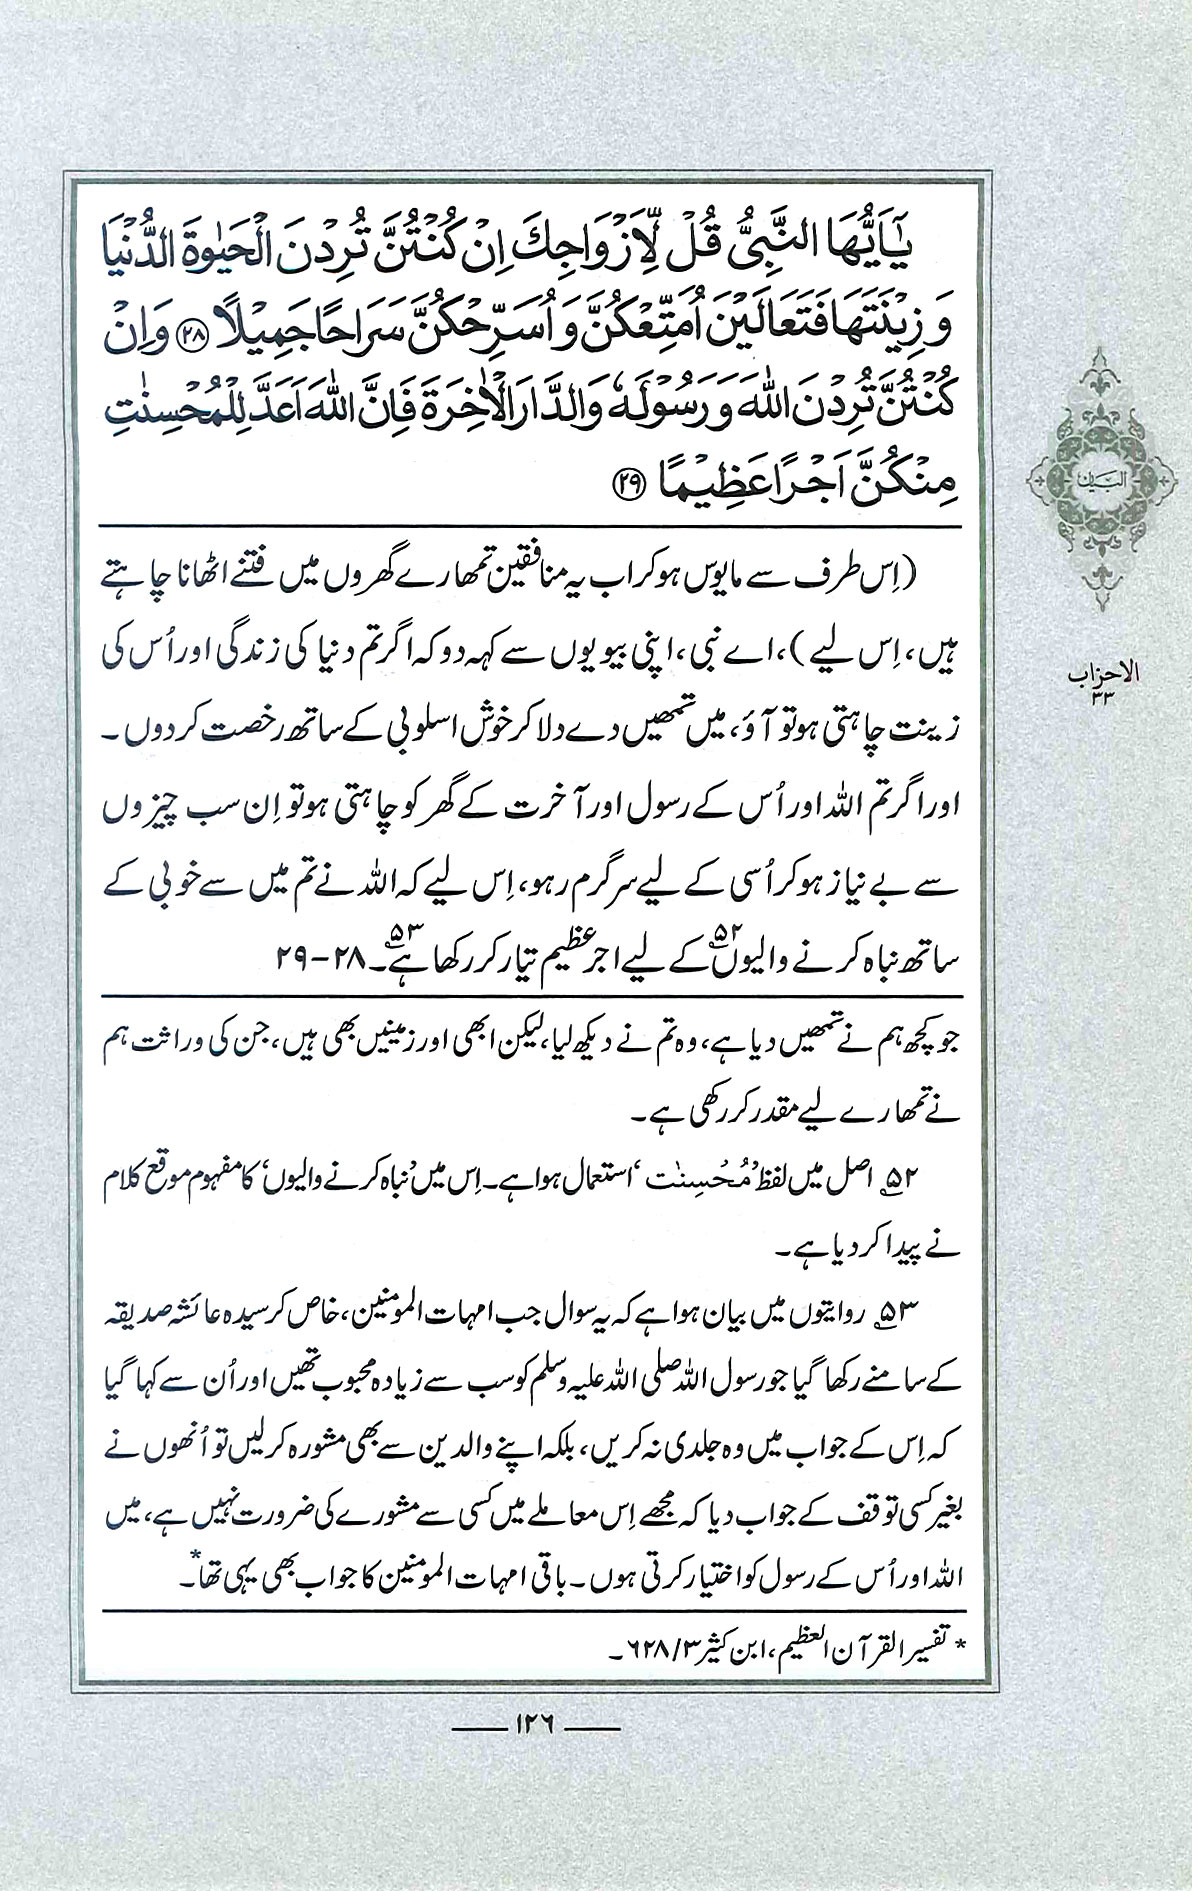 يٰٓاَيُّهَا النَّبِيُّ قُلْ لِّاَزْوَاجِكَ اِنْ كُنْتُنَّ تُرِدْنَ الْحَيٰوةَ الدُّنْيَا
وَ زِيْنَتَهَا فَتَعَالَيْنَ اُمَتِّعْكُنَّ وَ اُسَرِّحْكُنَّ سَرَاحًا جَمِيْلًا ﴿۲۸﴾ وَاِنْ
كُنْتُنَّ تُرِدْنَ اللّٰهَ وَ رَسُوْلَهٗ وَالدَّارَ الْاٰخِرَةَ فَاِنَّ اللّٰهَ اَعَدَّ لِلْمُحْسِنٰتِ
مِنْكُنَّ اَجْرًا عَظِيْمًا ﴿۲۹﴾
(اِس طرف سے مایوس ہو کر اب یہ منافقین تمھارے گھروں میں فتنے اٹھانا چاہتے
ہیں، اِس لیے)، اے نبی، اپنی بیویوں سے کہہ دو کہ اگر تم دنیا کی زندگی اور اُس کی
زینت چاہتی ہو تو آؤ، میں تمھیں دے دلا کر خوش اسلوبی کے ساتھ رخصت کر دوں۔
اور اگر تم اللہ اور اُس کے رسول اور آخرت کے گھر کو چاہتی ہو تو اِن سب چیزوں
سے بے نیاز ہو کر اُسی کے لیے سرگرم رہو، اِس لیے کہ اللہ نے تم میں سے خوبی کے
ساتھ نباہ کرنے والیوں۵۲ کے لیے اجر عظیم تیار کر رکھا ہے۵۳۔ ۲۸-۲۹
جو کچھ ہم نے تمھیں دیا ہے، وہ تم نے دیکھ لیا، لیکن ابھی اور زمینیں بھی ہیں، جن کی وراثت ہم
نے تمھارے لیے مقدر کر رکھی ہے۔
۵۲ اصل میں لفظ ’مُحْسِنٰت‘ استعمال ہوا ہے۔ اِس میں ’نباہ کرنے والیوں‘ کا مفہوم موقع کلام
نے پیدا کر دیا ہے۔
۵۳ روایتوں میں بیان ہوا ہے کہ یہ سوال جب امہات المومنین، خاص کر سیدہ عائشہ صدیقہ
کے سامنے رکھا گیا جو رسول اللہ صلی اللہ علیہ وسلم کو سب سے زیادہ محبوب تھیں اور اُن سے کہا گیا
کہ اِس کے جواب میں وہ جلدی نہ کریں، بلکہ اپنے والدین سے بھی مشورہ کر لیں تو اُنھوں نے
بغیر کسی توقف کے جواب دیا کہ مجھے اِس معاملے میں کسی سے مشورے کی ضرورت نہیں ہے، میں
اللہ اور اُس کے رسول کو اختیار کرتی ہوں۔ باقی امہات المومنین کا جواب بھی یہی تھا*۔
* تفسیر القرآن العظیم، ابن کثیر ۳/ ۶۲۸۔
البیان
الاحزاب
۳۳
۱۲۶